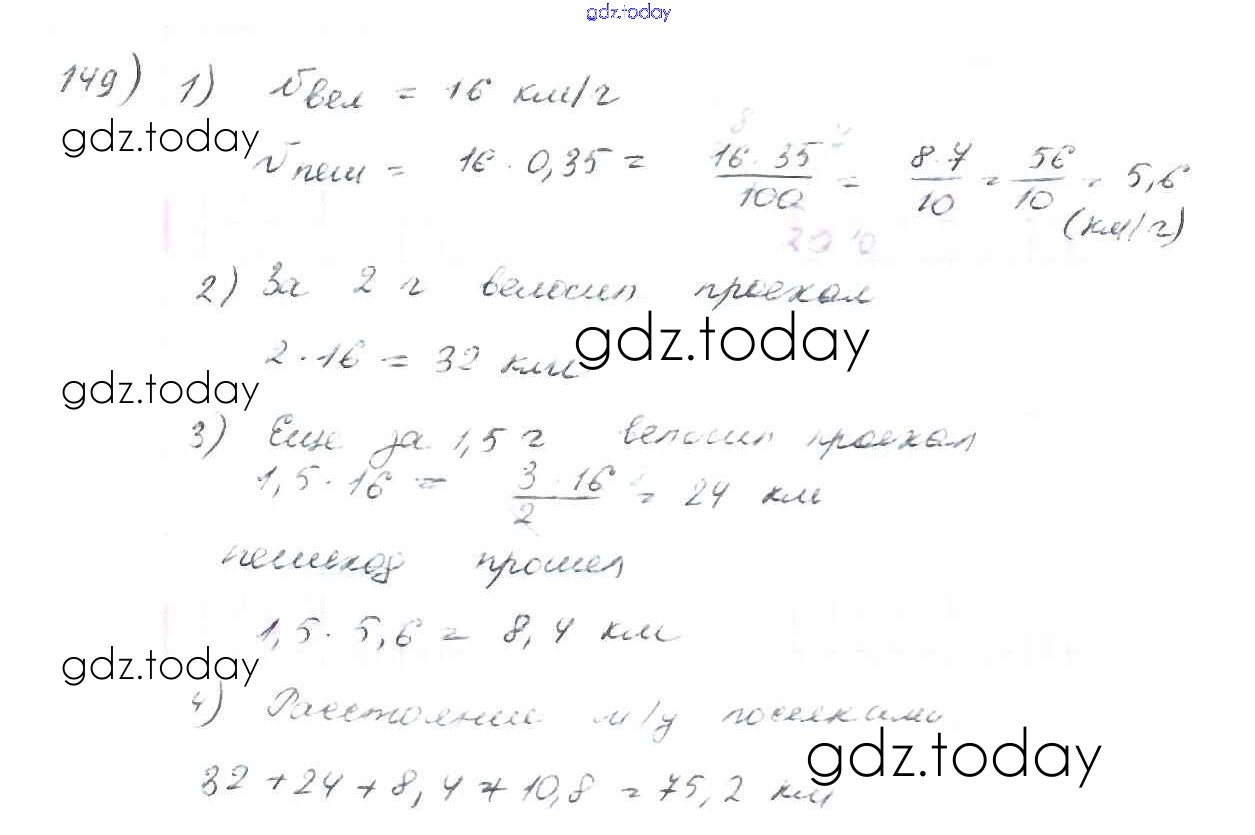 gdz.today
149) 1) Vвел = 16 км/ч
gdz.today
Vпеш = 16 · 0,35 = 16 · 35 / 100 = 8 · 7 / 10 = 56 / 10 = 5,6
(км/ч)
2) За 2 ч велосип проехал
gdz.today
2 · 16 = 32 км
gdz.today
3) Еще за 1,5 ч велосип проехал
1,5 · 16 = 3 · 16 / 2 = 24 км
пешеход прошел
1,5 · 5,6 = 8,4 км
gdz.today
4) Расстояние м/у поселками
gdz.today
32 + 24 + 8,4 + 10,8 = 75,2 км